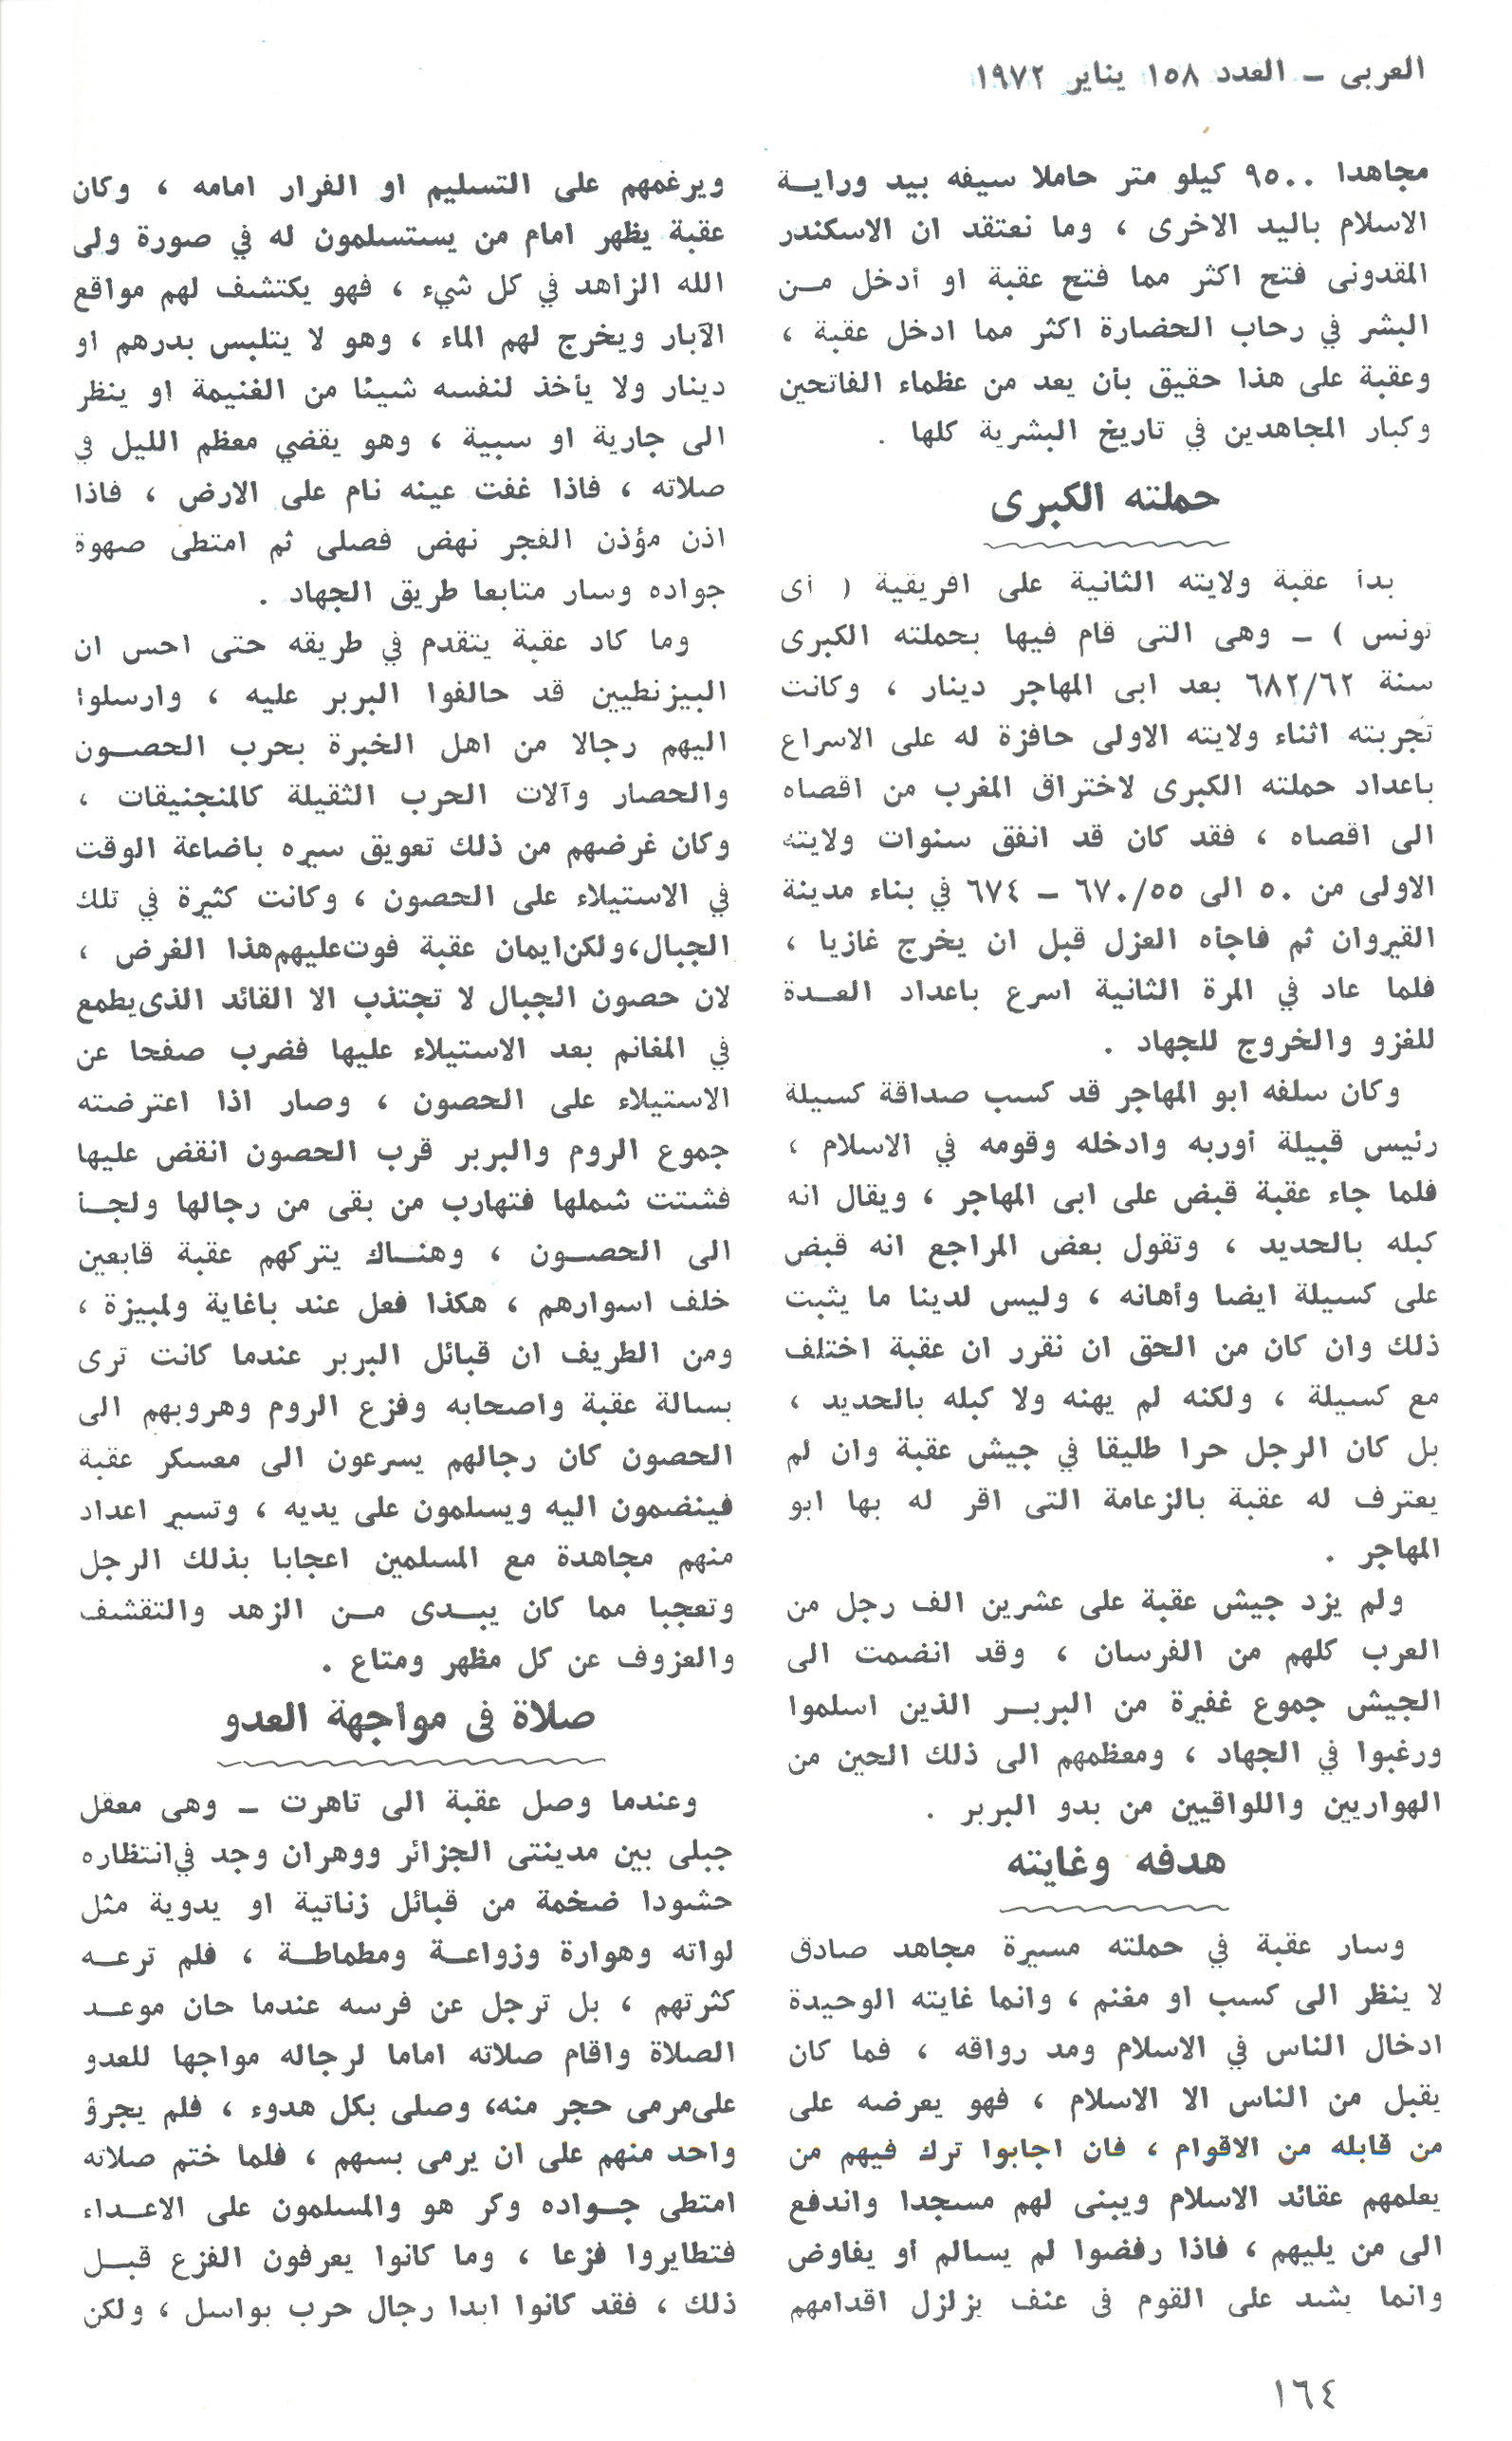 العربى – العدد ١٥٨ يناير ١٩٧٢
مجاهدا ٩٥٠٠ كيلو متر حاملا سيفه بيد ورايـة
الاسلام باليد الاخرى ، وما نعتقد ان الاسكندر
المقدونى فتح اكثر مما فتح عقبة او أدخل مـن
البشر في رحاب الحضارة اكثر مما ادخل عقبة ،
وعقبة على هذا حقيق بأن يعد من عظماء الفاتحين
وكبار المجاهدين في تاريخ البشرية كلها .
حملته الكبرى
بدأ عقبة ولايته الثانية على افريقية ( أى
تونس ) – وهى التى قام فيها بحملته الكبرى
سنة ٦٨٢/٦٢ بعد ابى المهاجر دينار ، وكانت
تجربته اثناء ولايته الاولى حافزة له على الاسراع
باعداد حملته الكبرى لاختراق المغرب من اقصاه
الى اقصاه ، فقد كان قد انفق سنوات ولايته
الاولى من ٥٠ الى ٦٧٠/٥٥ – ٦٧٤ في بناء مدينة
القيروان ثم فاجأه العزل قبل ان يخرج غازيا ،
فلما عاد في المرة الثانية اسرع باعداد العـدة
للغزو والخروج للجهاد .
وكان سلفه ابو المهاجر قد كسب صداقة كسيلة
رئيس قبيلة أوربه وادخله وقومه في الاسلام ،
فلما جاء عقبة قبض على ابى المهاجر ، ويقال انه
كبله بالحديد ، وتقول بعض المراجع انه قبض
على كسيلة ايضا وأهانه ، وليس لدينا ما يثبت
ذلك وان كان من الحق ان نقرر ان عقبة اختلف
مع كسيلة ، ولكنه لم يهنه ولا كبله بالحديد ،
بل كان الرجل حرا طليقا في جيش عقبة وان لم
يعترف له عقبة بالزعامة التى اقر له بها ابو
المهاجر .
ولم يزد جيش عقبة على عشرين الف رجل من
العرب كلهم من الفرسان ، وقد انضمت الى
الجيش جموع غفيرة من البربـر الذين اسلموا
ورغبوا في الجهاد ، ومعظمهم الى ذلك الحين من
الهواريين واللواقيين من بدو البربر .
هدفه وغايته
وسار عقبة في حملته مسيرة مجاهد صادق
لا ينظر الى كسب او مغنم ، وانما غايته الوحيدة
ادخال الناس في الاسلام ومد رواقه ، فما كان
يقبل من الناس الا الاسلام ، فهو يعرضه على
من قابله من الاقوام ، فان اجابوا ترك فيهم من
يعلمهم عقائد الاسلام ويبنى لهم مسجدا واندفع
الى من يليهم ، فاذا رفضوا لم يسالم أو يفاوض
وانما يشد على القوم فى عنف يزلزل اقدامهم
ويرغمهم على التسليم او الفرار امامه ، وكان
عقبة يظهر امام من يستسلمون له في صورة ولى
الله الزاهد في كل شيء ، فهو يكتشف لهم مواقع
الآبار ويخرج لهم الماء ، وهو لا يتلبس بدرهم او
دينار ولا يأخذ لنفسه شيئا من الغنيمة او ينظر
الى جارية او سبية ، وهو يقضي معظم الليل في
صلاته ، فاذا غفت عينه نام على الارض ، فاذا
اذن مؤذن الفجر نهض فصلى ثم امتطى صهوة
جواده وسار متابعا طريق الجهاد .
وما كاد عقبة يتقدم في طريقه حتى احس ان
البيزنطيين قد حالفوا البربر عليه ، وارسلوا
اليهم رجالا من اهل الخبرة بحرب الحصـون
والحصار وآلات الحرب الثقيلة كالمنجنيقات ،
وكان غرضهم من ذلك تعويق سيره باضاعة الوقت
في الاستيلاء على الحصون ، وكانت كثيرة في تلك
الجبال، ولكن ايمان عقبة فوت عليهم هذا الغرض ،
لان حصون الجبال لا تجتذب الا القائد الذى يطمع
في المغانم بعد الاستيلاء عليها فضرب صفحا عن
الاستيلاء على الحصون ، وصار اذا اعترضته
جموع الروم والبربر قرب الحصون انقض عليها
فشتت شملها فتهارب من بقى من رجالها ولجـأ
الى الحصـون ، وهنـاك يتركهم عقبة قابعين
خلف اسوارهم ، هكذا فعل عند باغاية ولمبيزة ،
ومن الطريف ان قبائل البربر عندما كانت ترى
بسالة عقبة واصحابه وفزع الروم وهروبهم الى
الحصون كان رجالهم يسرعون الى معسكر عقبة
فينضمون اليه ويسلمون على يديه ، وتسير اعداد
منهم مجاهدة مع المسلمين اعجابا بذلك الرجل
وتعجبا مما كان يبـدى مـن الزهد والتقشف
والعزوف عن كل مظهر ومتاع .
صلاة فى مواجهة العدو
وعندما وصل عقبة الى تاهرت – وهى معقل
جبلى بين مدينتى الجزائر ووهران وجد في انتظاره
حشودا ضخمة من قبائل زناتية او يدوية مثل
لواته وهوارة وزواعـة ومطماطـة ، فلم ترعـه
كثرتهم ، بل ترجل عن فرسه عندما حان موعـد
الصلاة واقام صلاته اماما لرجاله مواجها للعدو
على مرمى حجر منه، وصلى بكل هدوء ، فلم يجرؤ
واحد منهم على ان يرمى بسهم ، فلما ختم صلاته
امتطى جـواده وكر هو والمسلمون على الاعـداء
فتطايروا فزعا ، وما كانوا يعرفون الفزع قبـل
ذلك ، فقد كانوا ابدا رجال حرب بواسل ، ولكن
١٦٤